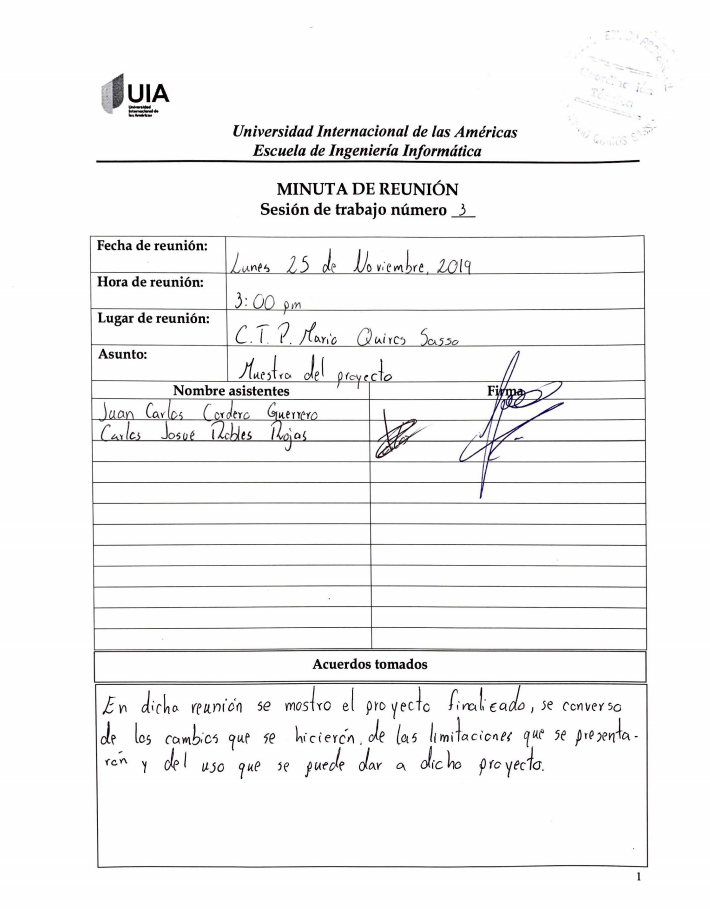 UIA
Universidad
Internacional de
las Américas
Universidad Internacional de las Américas
Escuela de Ingeniería Informática
MINUTA DE REUNIÓN
Sesión de trabajo número 3
Fecha de reunión:
Lunes 25 de Noviembre, 2019
Hora de reunión:
3:00 pm
Lugar de reunión:
C.T.P. Mario Quiros Sasso
Asunto:
Muestra del proyecto
Nombre asistentes Firma
Juan Carlos Cordero Guerrero
Carlos Josué Robles Rojas
Acuerdos tomados
En dicha reunión se mostro el proyecto finalicado, se converso
de los cambios que se hicierón, de las limitaciones que se presenta-
rón y del uso que se puede dar a dicho proyecto.
1